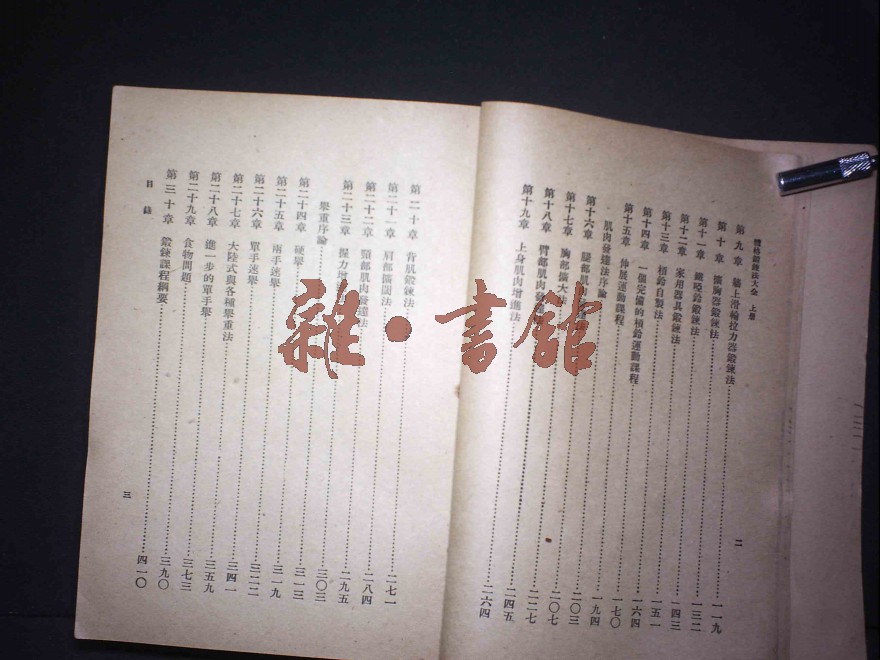 體格鍛鍊法大全 上册
第九章 牆上滑輪拉力器鍛鍊法 一一九
第十章 擴胸器鍛鍊法 一三二
第十一章 鐵啞鈴鍛鍊法 一四三
第十二章 家用器具鍛鍊法 一五一
第十三章 槓鈴自製法 一六四
第十四章 一個完備的槓鈴運動課程 一七〇
第十五章 伸展運動課程 一九四
肌肉發達法序論 二〇三
第十六章 腿部 二〇七
第十七章 胸部擴大法 二二七
第十八章 臂部肌肉 二四五
第十九章 上身肌肉增進法 二六四
二
第二十章 背肌鍛鍊法 二七一
第二十一章 肩部擴闊法 二八四
第二十二章 頸部肌肉發達法 二九五
第二十三章 握力增 三〇三
舉重序論
第二十四章 硬舉 三一三
第二十五章 兩手速舉 三一九
第二十六章 單手速舉 三二二
第二十七章 大陸式與各種舉重法 三四一
第二十八章 進一步的單手舉 三五九
第二十九章 食物問題 三七三
第三十章 鍛鍊課程綱要 三九〇
四一〇
目錄
三
雜·書館